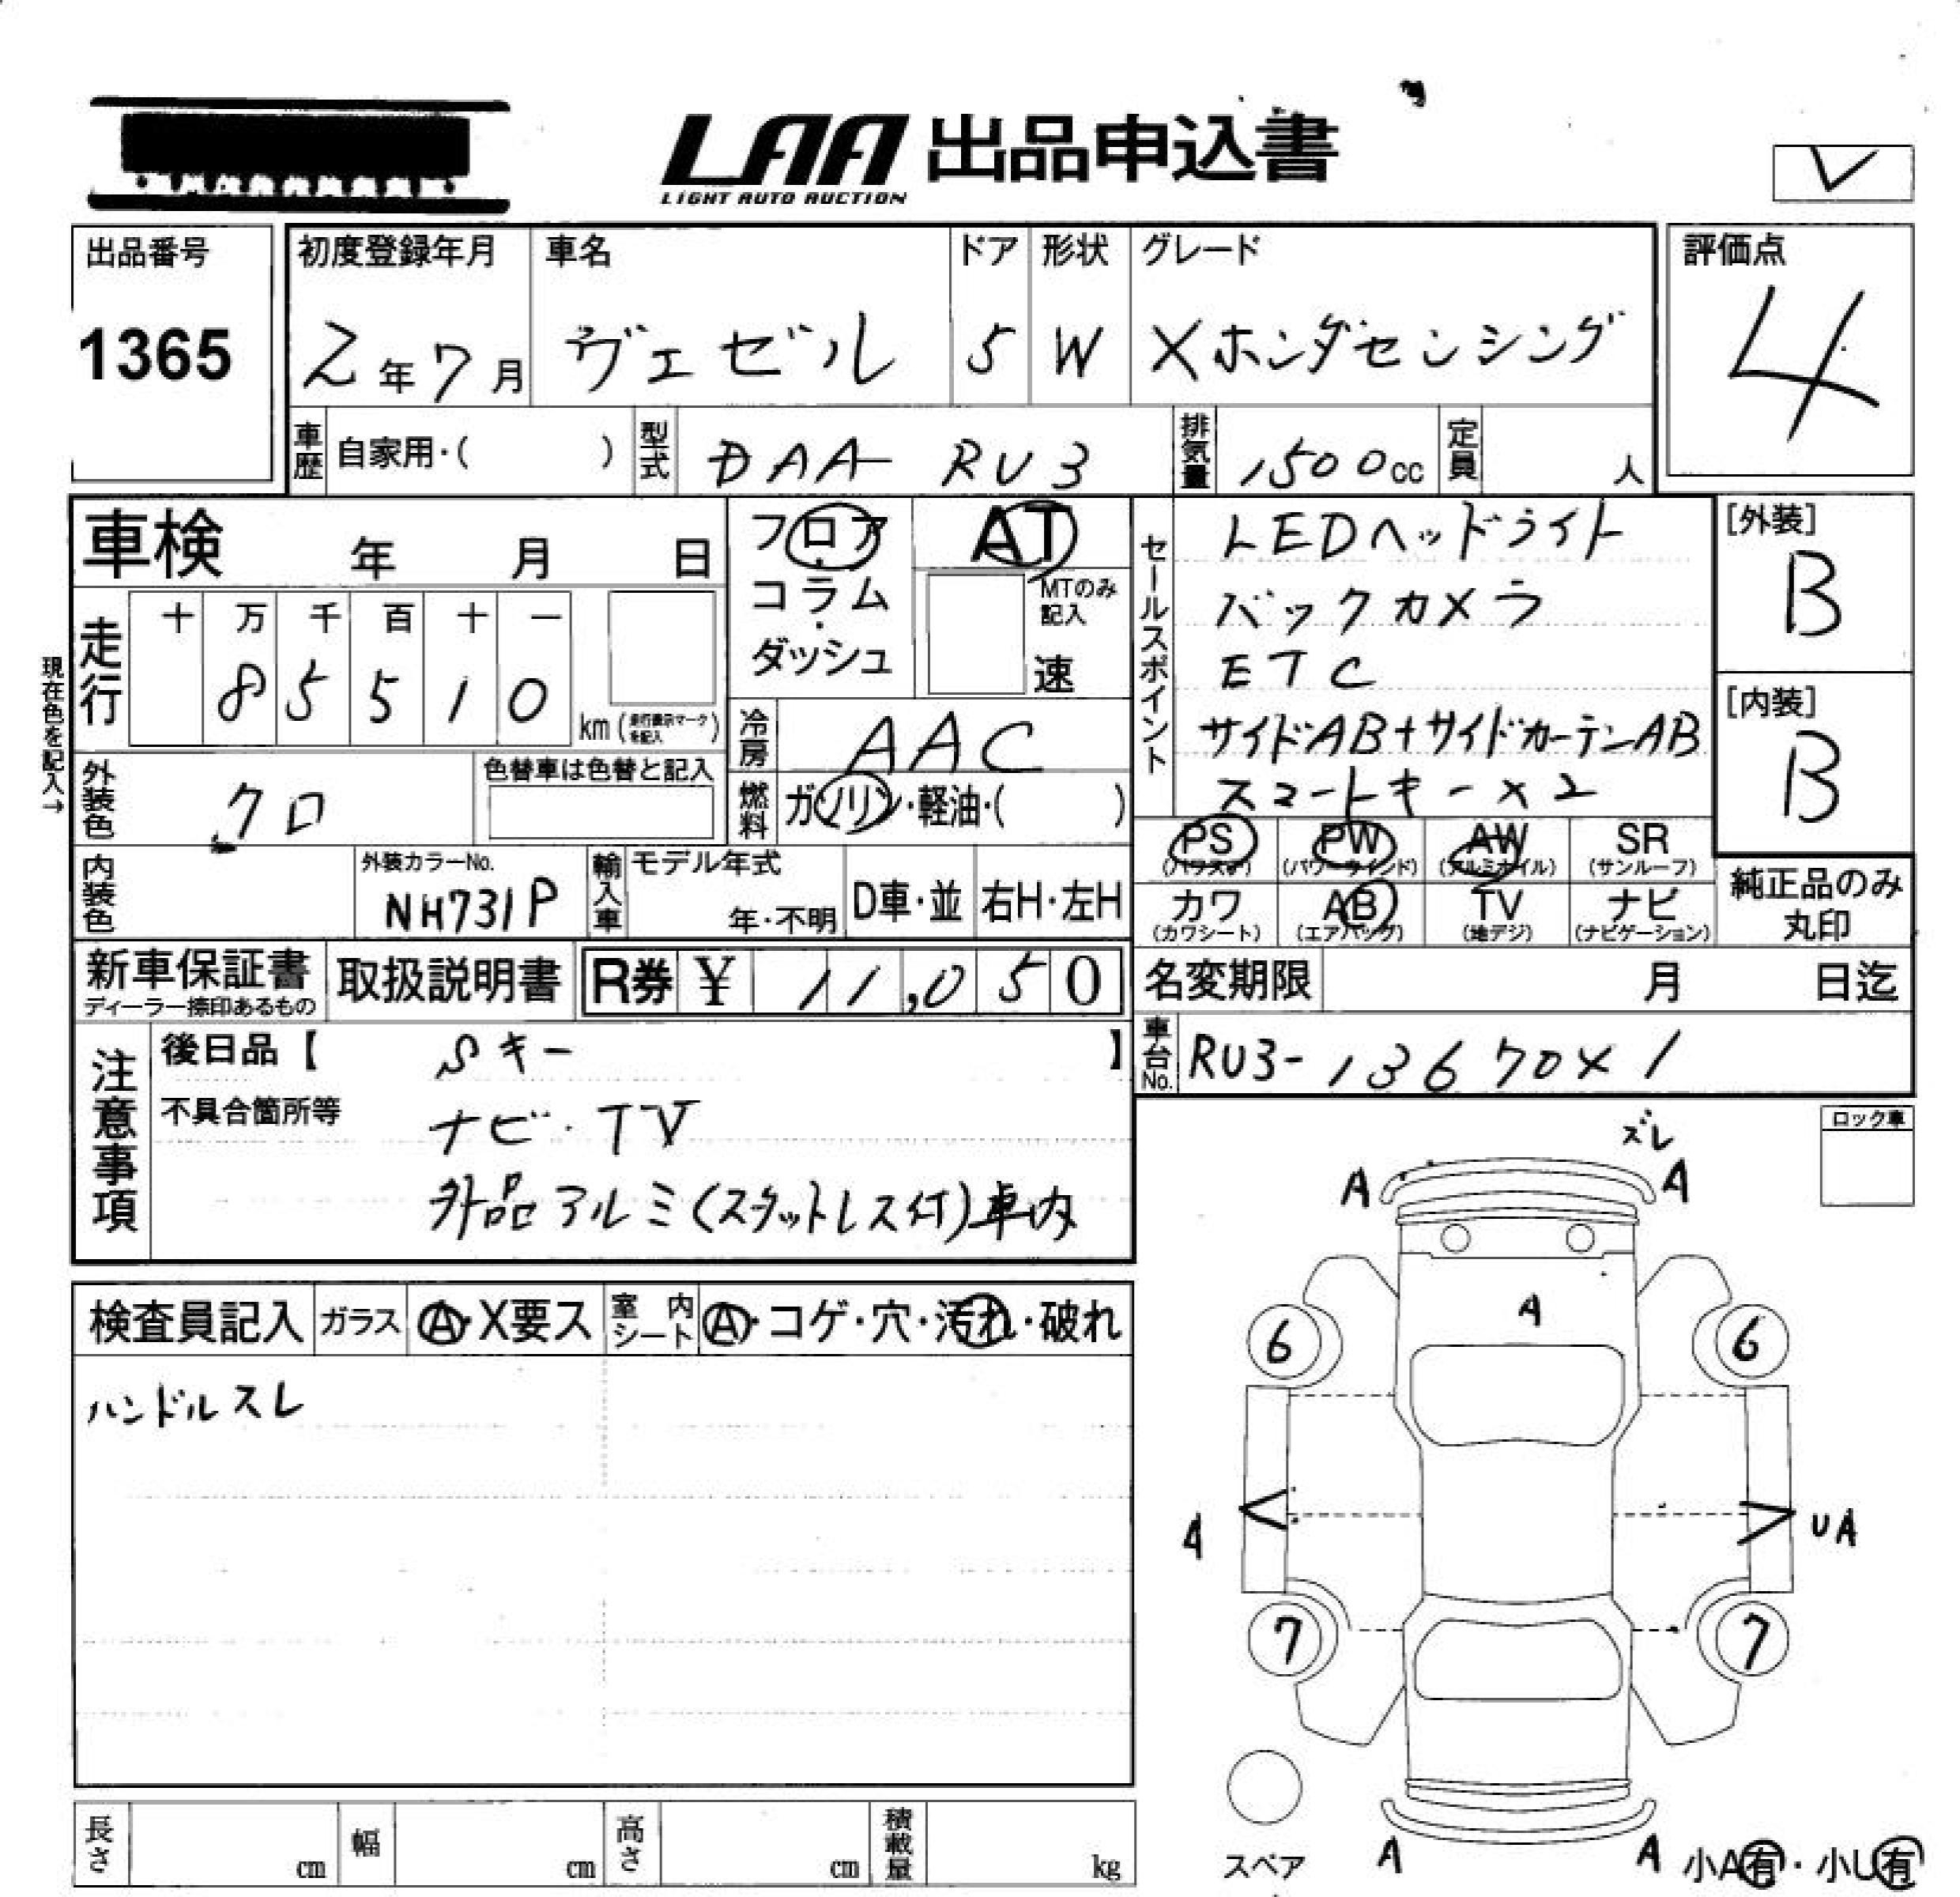 LAA 出品申込書
LIGHT AUTO AUCTION
レ
出品番号
1365
初度登録年月
2年7月
車名
ヴェゼル
ドア
5
形状
W
グレード
Xホンダセンシング
評価点
4
車歴 自家用・( )
型式 DAA RU3
排気量 1500cc
定員 人
車検 年 月 日
フロア・コラム・ダッシュ
AT
MTのみ記入
速
走行
十 万 千 百 十 一
8 5 5 1 0
km (走行表示マークを記入)
現在色を記入→
冷房 AAC
燃料 ガソリン・軽油・( )
外装色 クロ
色替車は色替と記入
内装色
外装カラーNo.
NH731P
輸入車 モデル年式
年・不明
D車・並
右H・左H
セールスポイント
LEDヘッドライト
バックカメラ
ETC
サイドAB+サイドカーテンAB
スマートキー×2
[外装]
B
[内装]
B
PS (パワステ)
PW (パワーウインド)
AW (アルミホイル)
SR (サンルーフ)
カワ (カワシート)
AB (エアバッグ)
TV (地デジ)
ナビ (ナビゲーション)
純正品のみ丸印
新車保証書
ディーラー捺印あるもの
取扱説明書
R券 ¥ 11,050
名変期限 月 日迄
車台No. RU3-13670×1
注意事項
後日品【 Sキー 】
不具合箇所等
ナビ・TV
外品アルミ(スタットレス付)車内
ロック車
検査員記入
ガラス Ⓐ・X要ス
室内シート Ⓐ・コゲ・穴・汚れ・破れ
ハンドルスレ
ズレ
A A
A
6 6
A UA
7 7
スペア
A A
小A有・小U有
長さ cm
幅 cm
高さ cm
積載量 kg